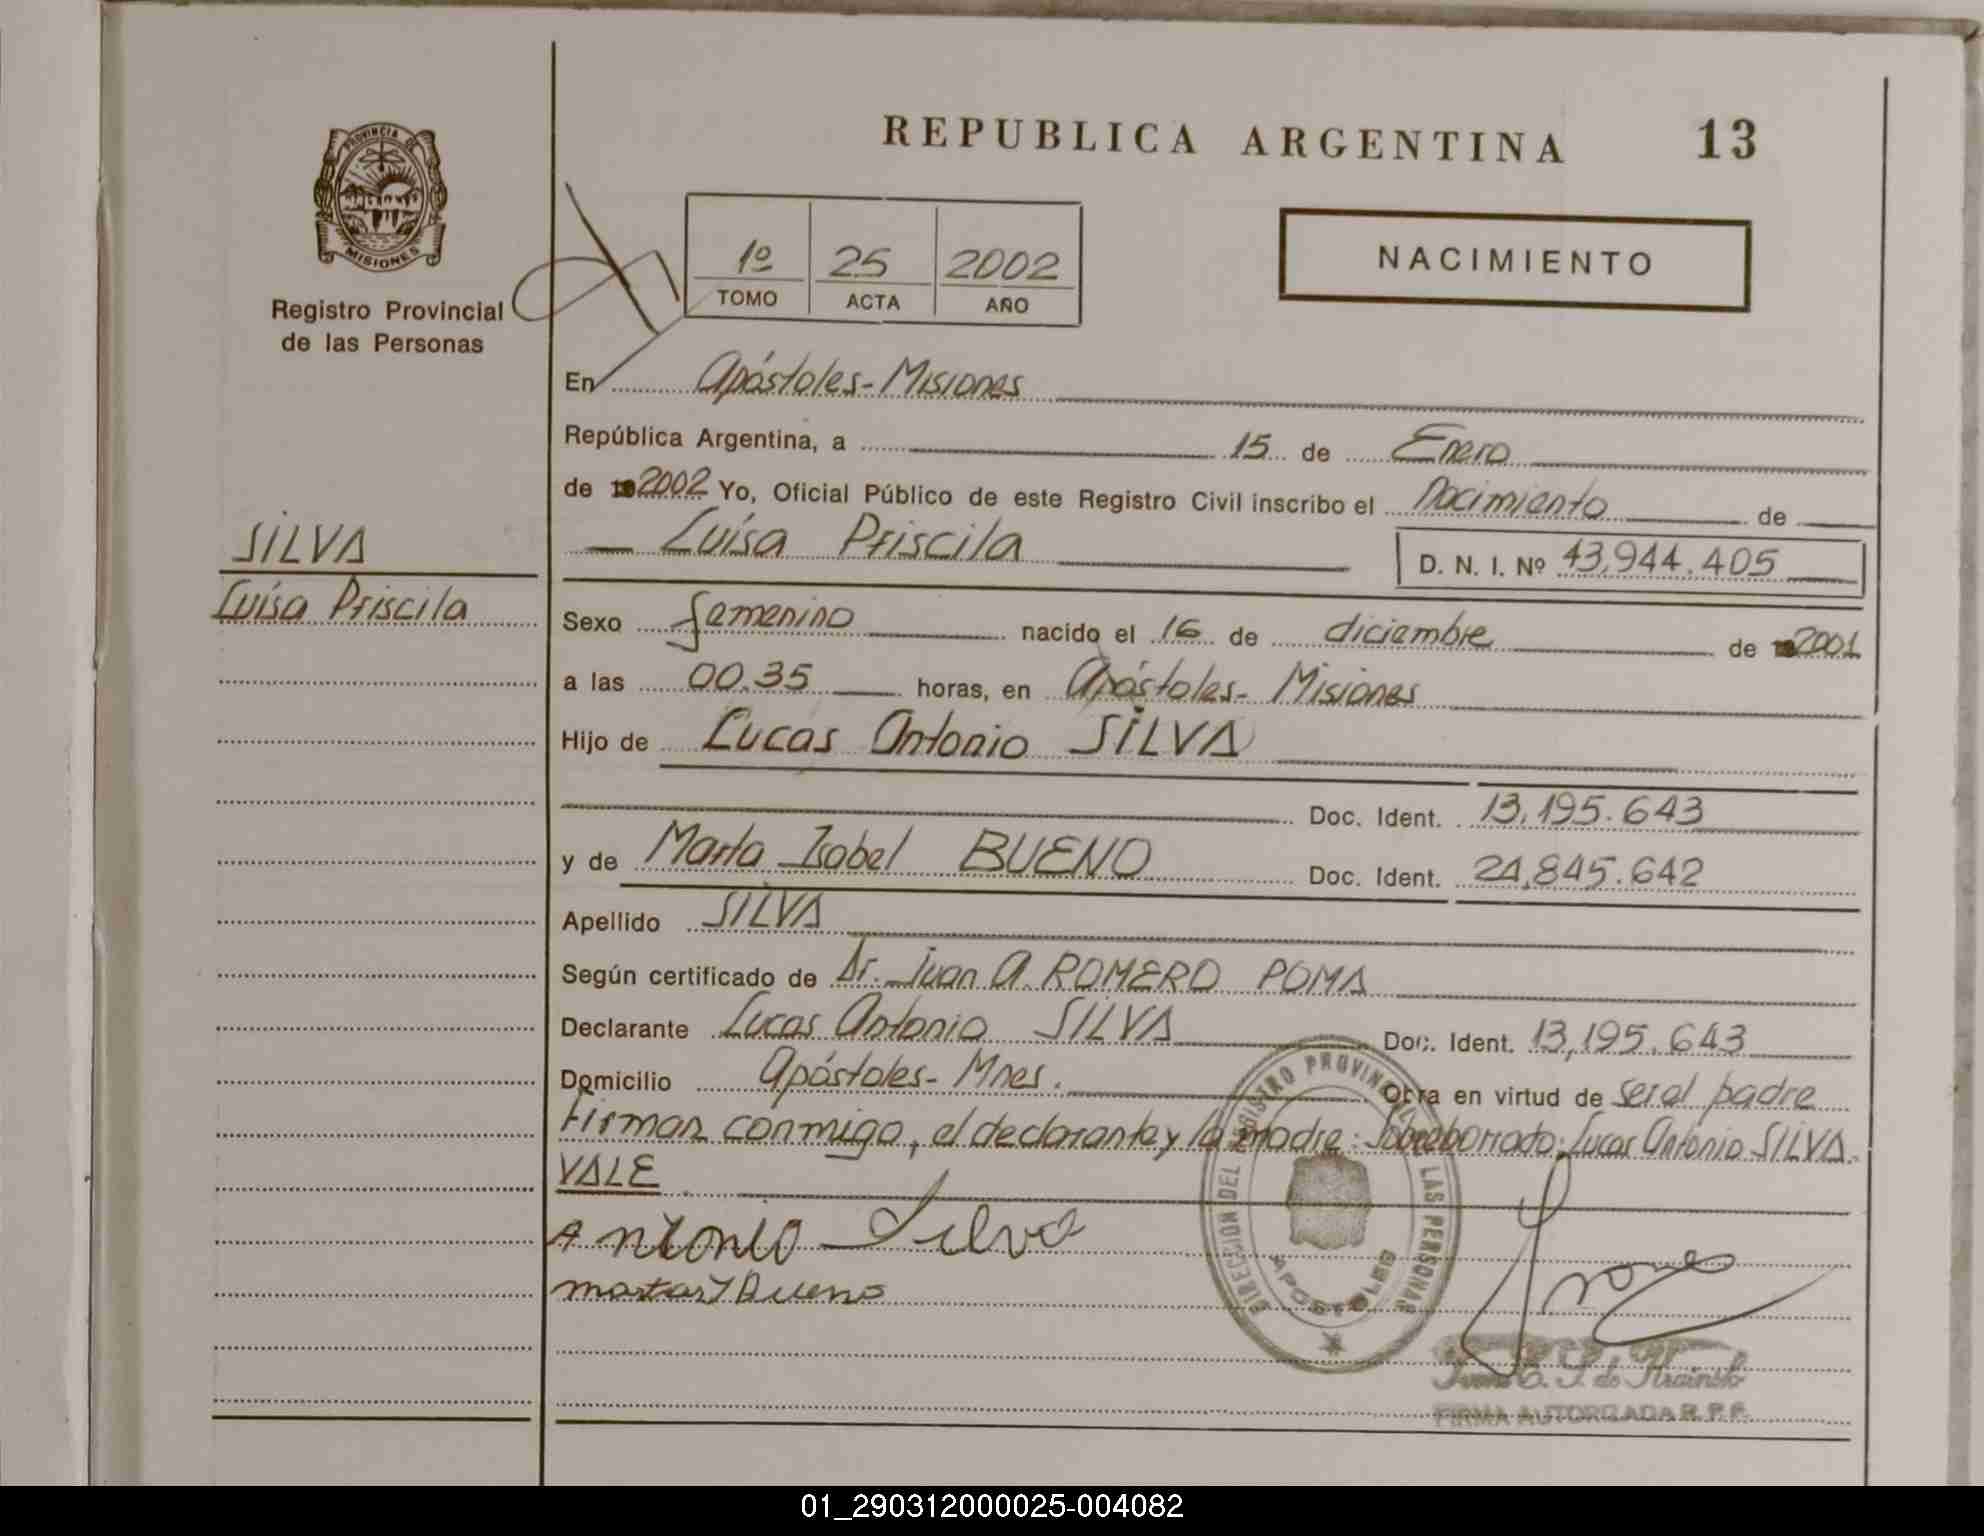 REPUBLICA ARGENTINA 13
PROVINCIA DE
MISIONES
Registro Provincial
de las Personas
1º 25 2002
TOMO ACTA AÑO
NACIMIENTO
En Apóstoles-Misiones
República Argentina, a 15 de Enero
de 2002 Yo, Oficial Público de este Registro Civil inscribo el Nacimiento de
Luísa Priscila
D. N. I. Nº 43,944.405
SILVA
Luísa Priscila
Sexo femenino nacido el 16 de diciembre de 2001
a las 00.35 horas, en Apóstoles- Misiones
Hijo de Lucas Antonio SILVA
Doc. Ident. 13,195.643
y de Marta Isabel BUENO Doc. Ident. 24,845.642
Apellido SILVA
Según certificado de Dr. Juan A. ROMERO POMA
Declarante Lucas Antonio SILVA Doc. Ident. 13,195.643
Domicilio Apóstoles- Mnes. Obra en virtud de ser el padre
Firman conmigo, el declarante y la madre: Sobreborrado: Lucas Antonio SILVA.
VALE.
Antonio Silva
Bueno
DIRECCION DEL REGISTRO PROVINCIAL DE LAS PERSONAS
APOSTOLES
FIRMA AUTORIZADA R. P. P.
01_290312000025-004082